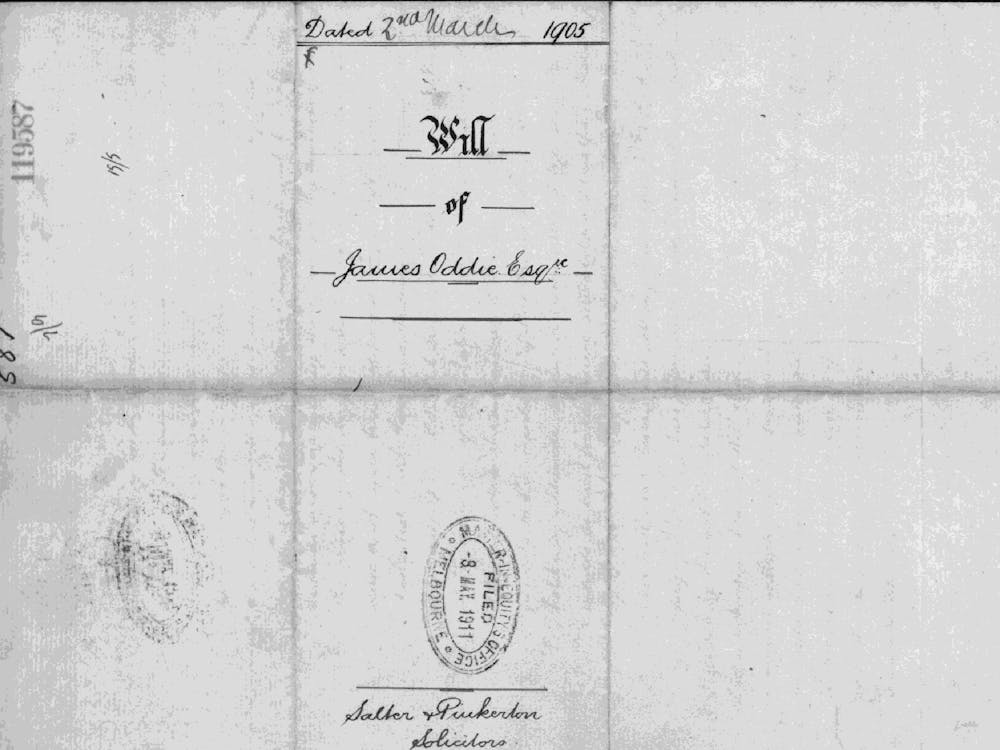 Dated 2nd March 1905
Will
of
James Oddie Esqre
119587
15/5
587
MASTER-IN-EQUITY'S OFFICE
MELBOURNE
FILED
-8 MAY 1911
Salter & Pinkerton
Solicitors